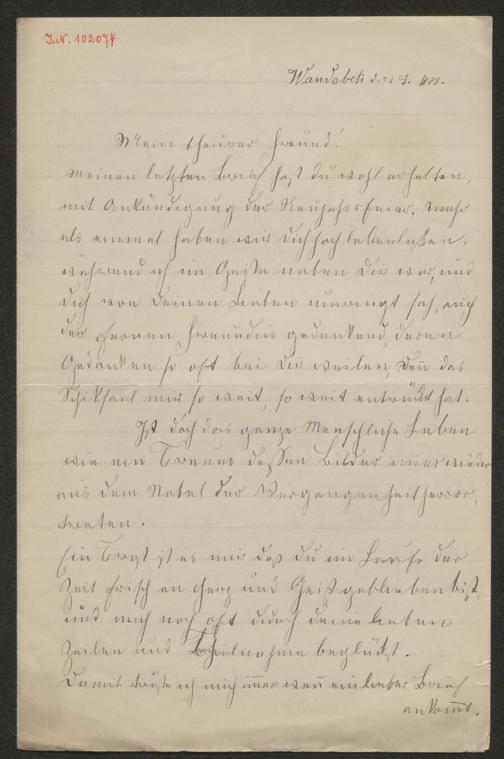 J.N. 102074
Wandsbek d. 1. 88.
Mein theurer Freund!
Meinen letzten Brief hast du wohl erhalten,
mit Ankündigung der Neujahrsfeier. Mehr
als einmal haben wir dich hoch leben laßen,
während ich im Geiste neben Dir war, und
dich von Deinen Lieben umringt sah, auch
der fernen Freundin gedenkend, deren
Gedanken so oft bei Dir weilen, den das
Schiksaal mir so weit, so weit entrükt hat.
Ist doch das ganze Menschliche Leben
wie ein Traum dessen Bilder im̄er wieder
aus dem Nebel der Vergangenheit hervor-
treten.
Ein Trost ist es mir das du im Laufe der
Zeit frisch an Herz und Geist geblieben bist,
und mich noch oft durch deine lieben
Zeilen und Theilnahme beglükst.
Damit tröste ich mich im̄er wen̄ ein lieber Brief
ankom̄t.